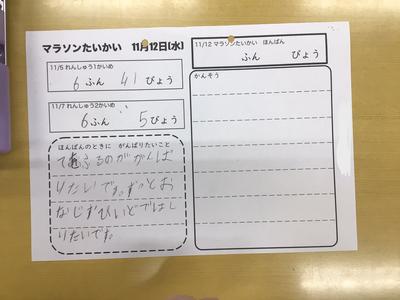 マラソンたいかい 11月12日(水)
11/5 れんしゅう1かいめ
6 ふん 41 びょう
11/7 れんしゅう2かいめ
6 ふん 5 びょう
ほんばんのときに がんばりたいこと
てをふるのががんば
りたいです。ずっとお
なじすぴいどではし
りたいです。
11/12 マラソンたいかい ほんばん
ふん びょう
かんそう